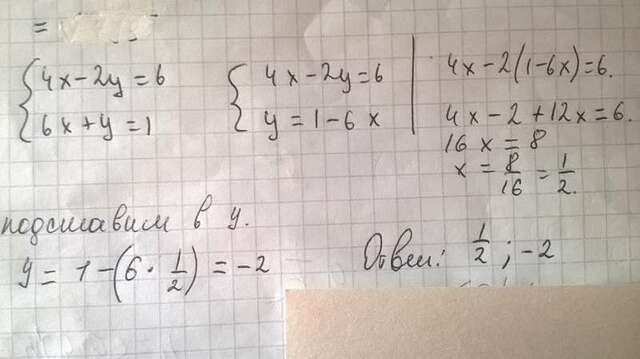 =
{4x-2y=6
{6x+y=1
{4x-2y=6
{y=1-6x
4x-2(1-6x)=6.
4x-2+12x=6.
16x=8
x=8/16=1/2.
подставим в y.
y=1-(6·1/2)=-2
Ответ: 1/2; -2